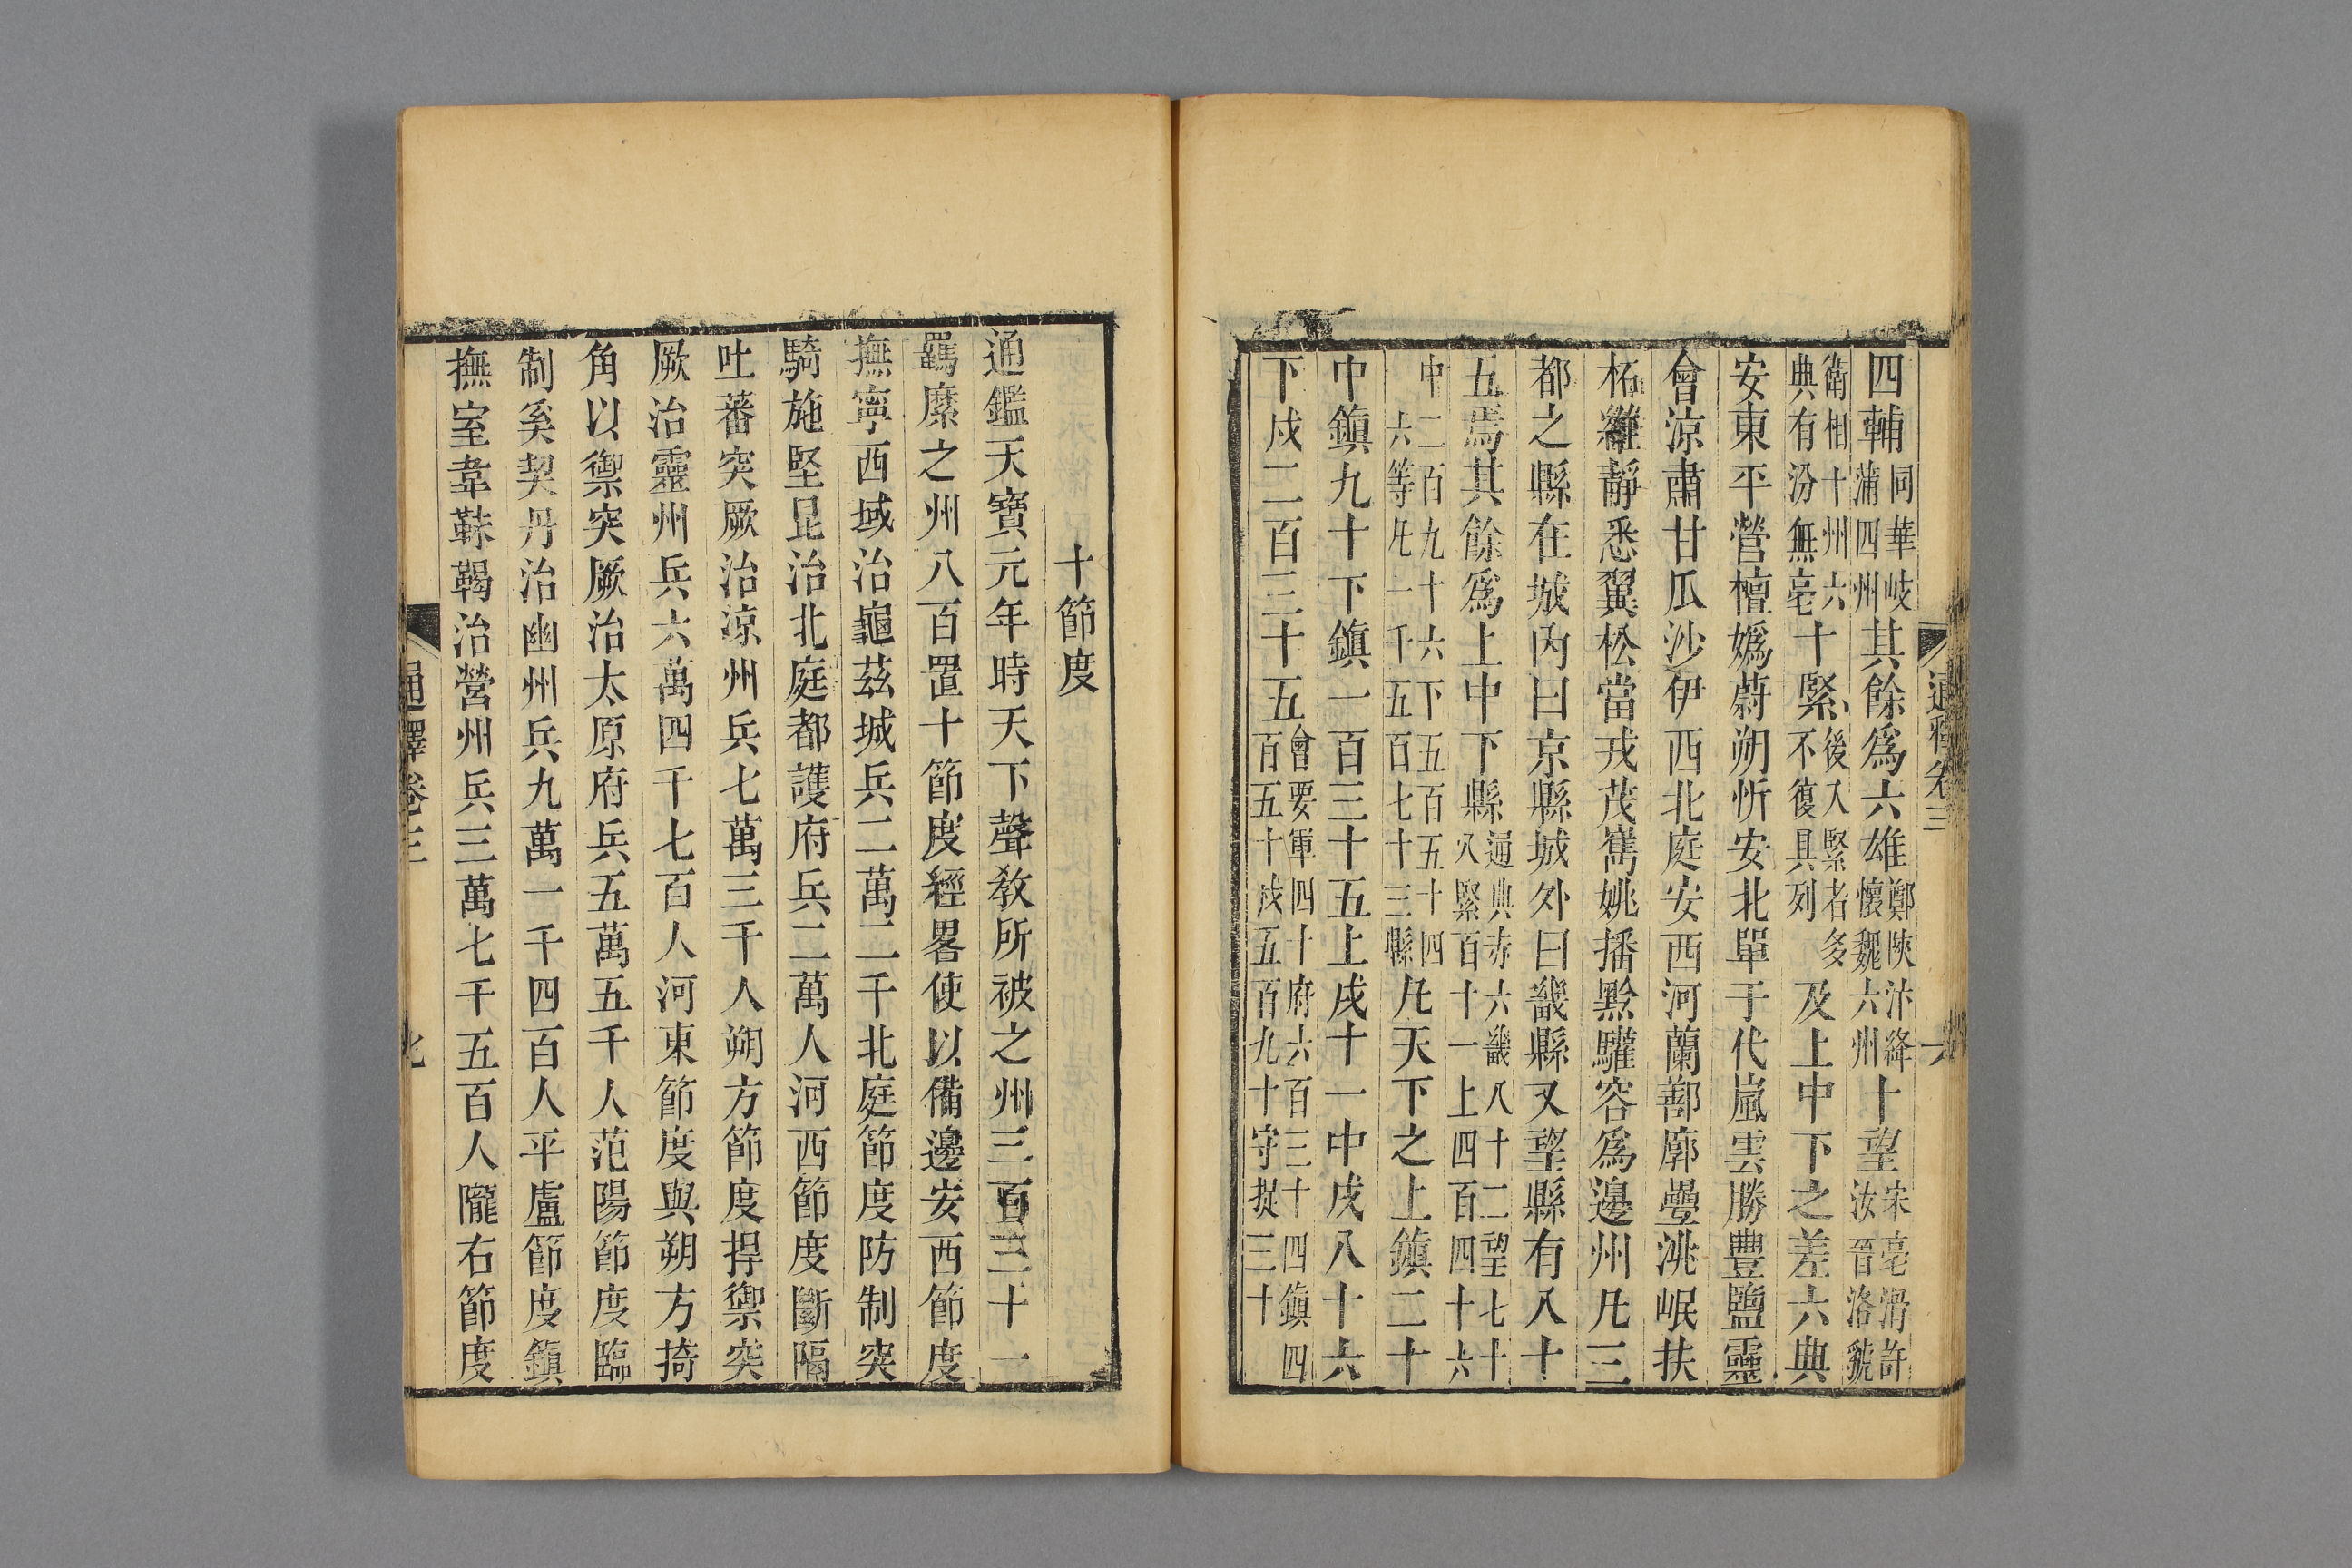 通釋卷三
六
四輔同華岐蒲四州其餘爲六雄鄭陝汴絳懷魏六州十望宋亳滑許汝晉洛虢
衞相十州六典有汾無亳十緊後入緊者多不復具列及上中下之差六典
安東平營檀嬀蔚朔忻安北單于代嵐雲勝豐鹽靈
會涼肅甘瓜沙伊西北庭安西河蘭鄯廓疊洮岷扶
柘維靜悉翼松當戎茂巂姚播黔驩容爲邊州凡三
都之縣在城內曰京縣城外曰畿縣又望縣有八十
五焉其餘爲上中下縣通典赤六畿八十二望七十八緊百十一上四百四十六
中二百九十六下五百五十四六等凡一千五百七十三縣凡天下之上鎮二十
中鎮九十下鎮一百三十五上戍十一中戍八十六
下戍二百三十五會要軍四十府六百三十四鎮四百五十戍五百九十守捉三十
十節度
通鑑天寶元年時天下聲教所被之州三百三十一
羈縻之州八百置十節度經畧使以備邊安西節度
撫寧西域治龜茲城兵二萬二千北庭節度防制突
騎施堅昆治北庭都護府兵二萬人河西節度斷隔
吐蕃突厥治涼州兵七萬三千人朔方節度捍禦突
厥治靈州兵六萬四千七百人河東節度與朔方掎
角以禦突厥治太原府兵五萬五千人范陽節度臨
制奚契丹治幽州兵九萬一千四百人平盧節度鎮
撫室韋靺鞨治營州兵三萬七千五百人隴右節度
通釋卷三